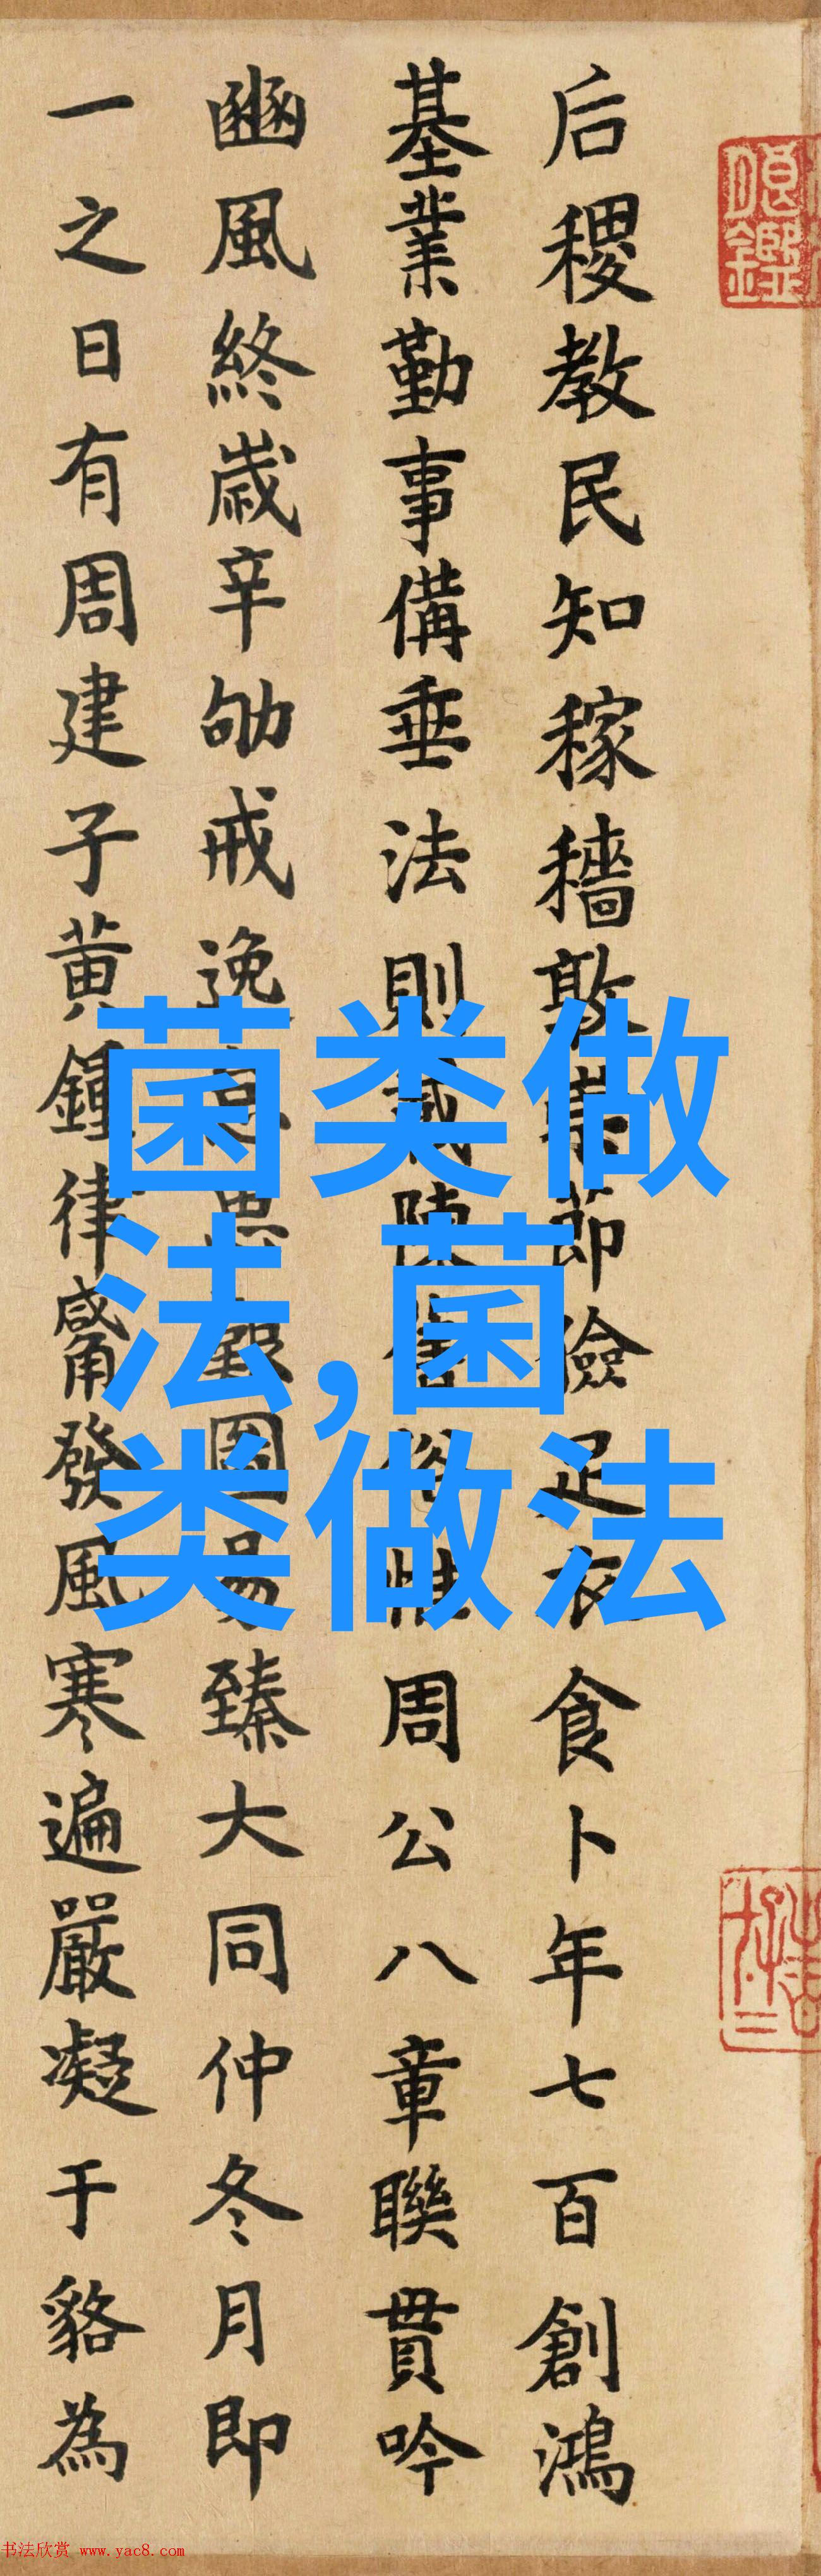 后稷教民知稼穡敦崇節儉足衣食卜年七百創鴻
基業勤事備垂法則陳俗惟周公八章聯貫吟
豳風終歲辛劬戒逸圖易臻大同仲冬月即
一之日有周建子黃鍾律觱發風寒遍嚴凝于貉為
菌类做
法,菌
类做法
书法欣赏 www.yac8.com